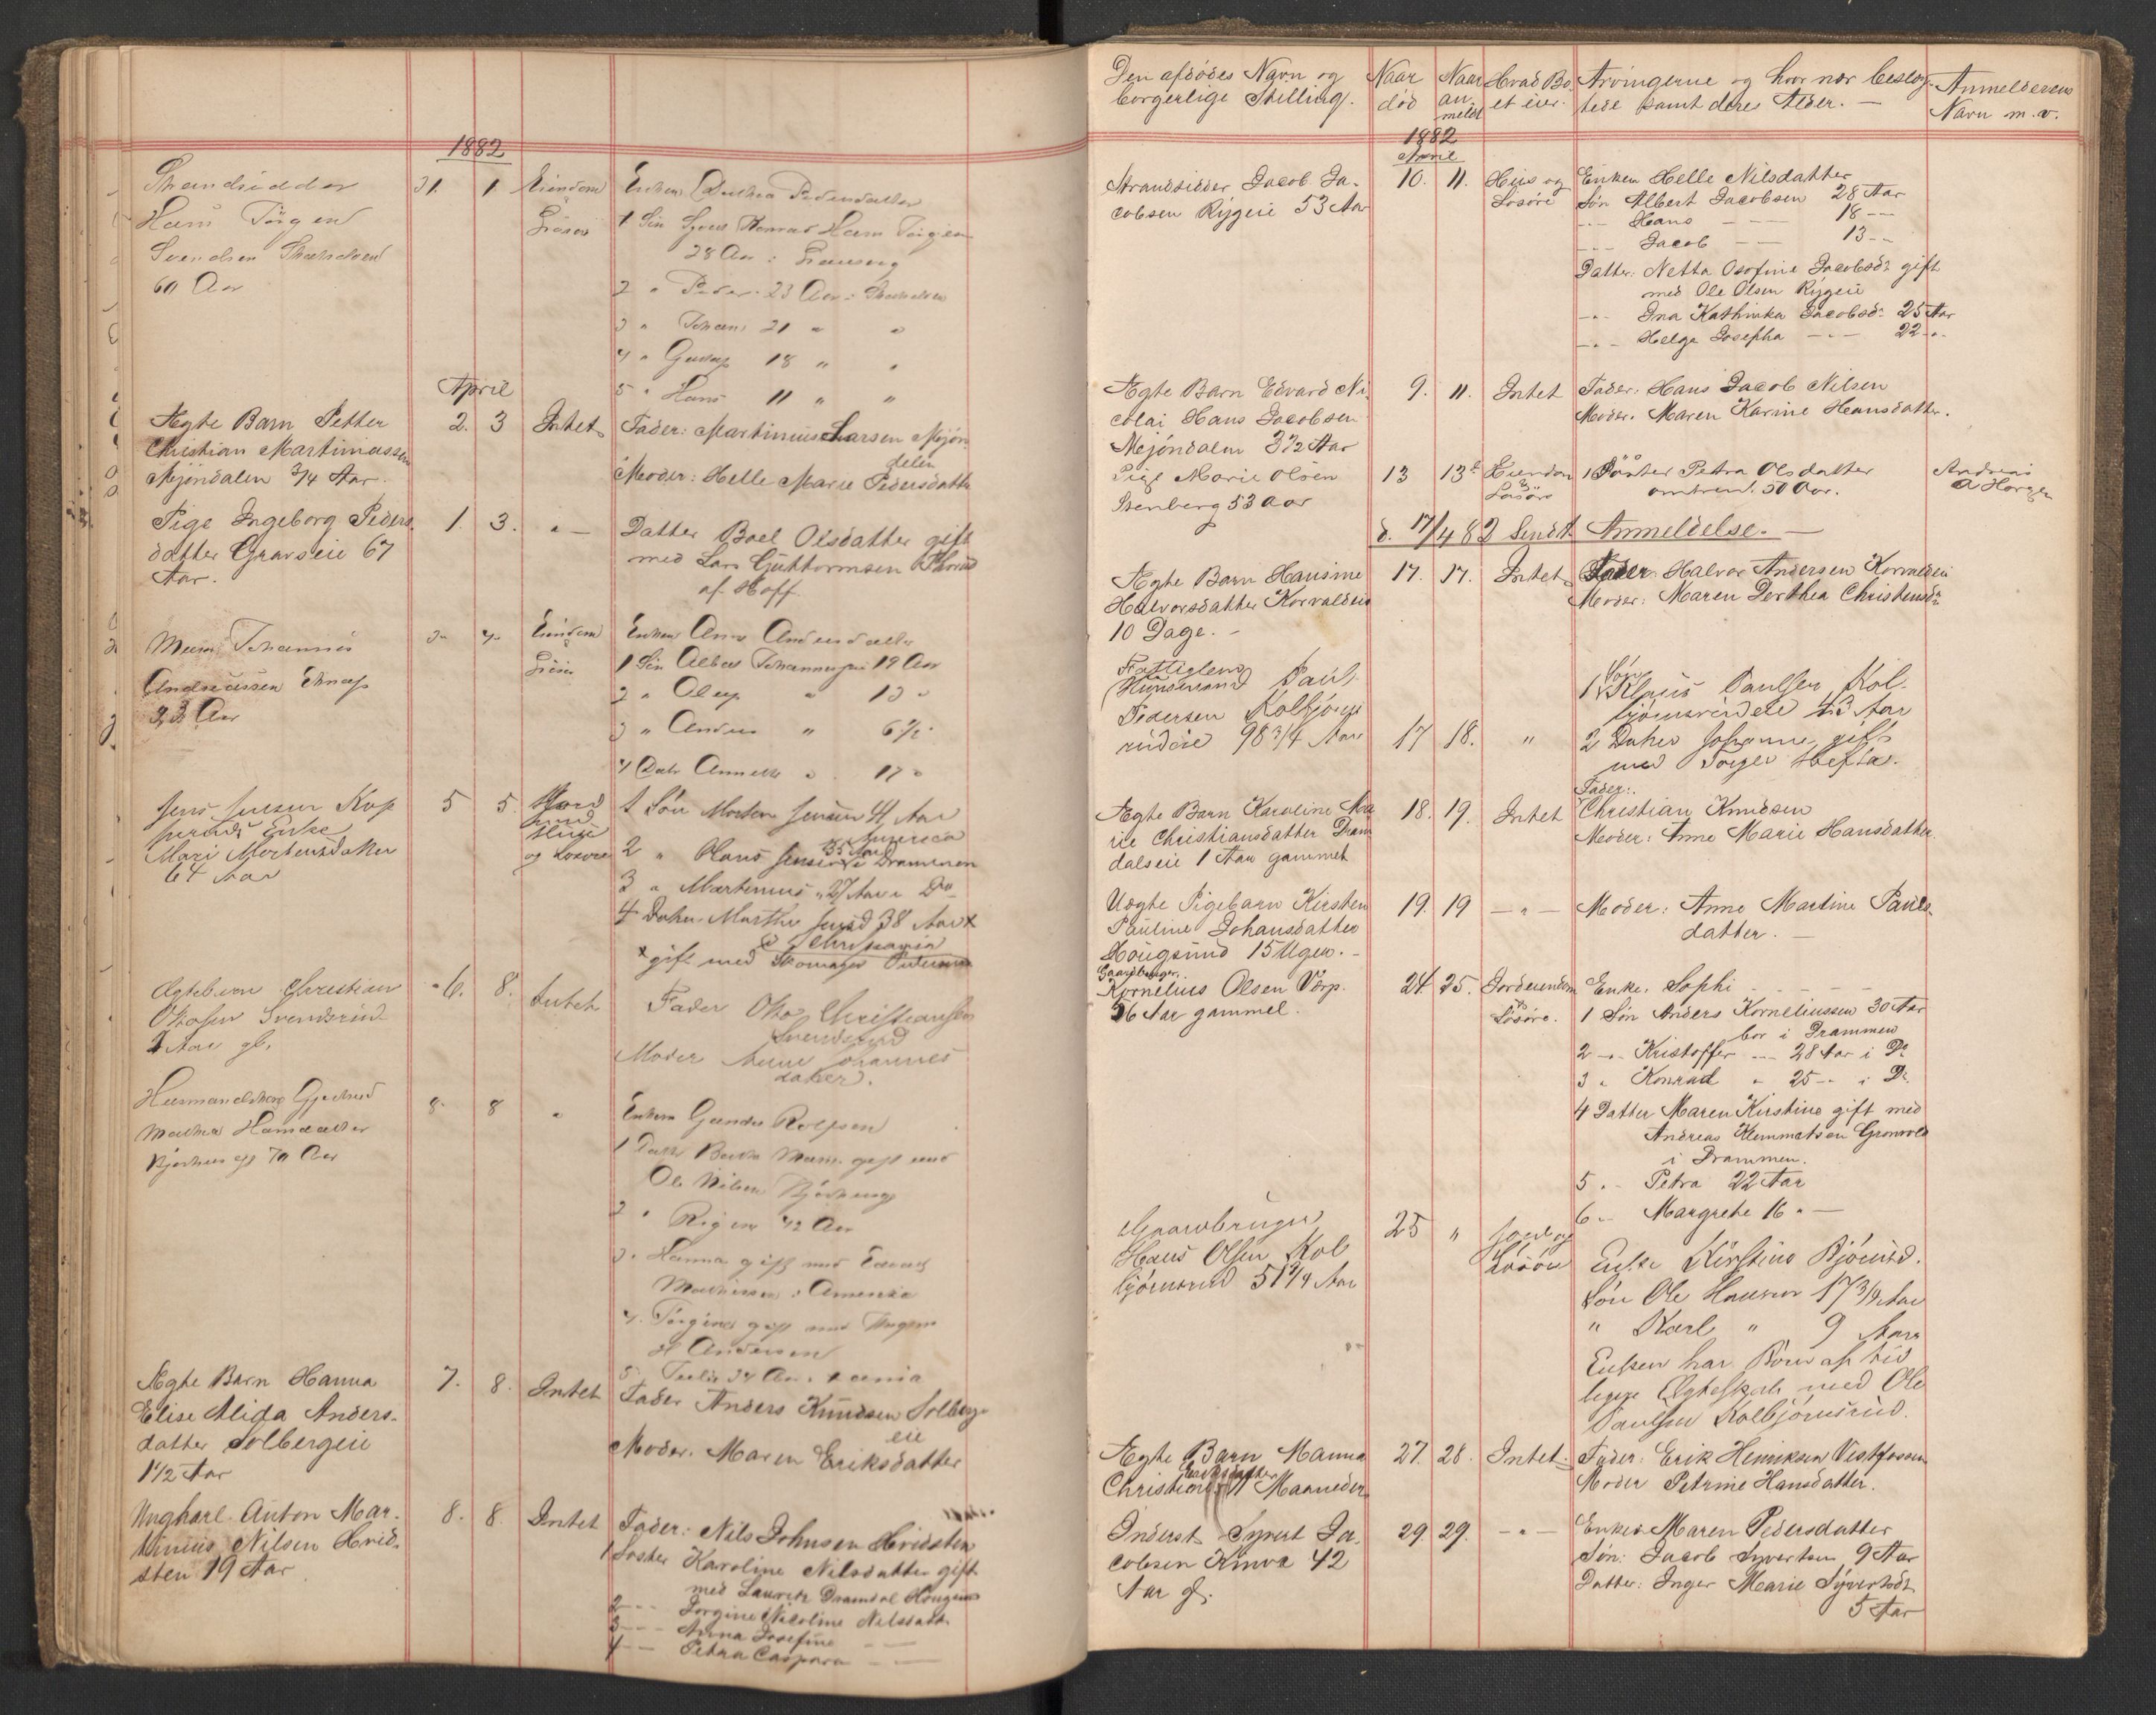 1882
Strandsidder
Hans Jörgen
Svendsen Strandven
60 Aar
31. 1. Eiendom
Lösöre
Enken Dorthea Pedersdatter
1 Sön Syvert Konrad Hans Jörgen
28 Aar i
2 " Peder 23 Aar i
3 " Johan 21 " "
4 " Gustav 18 " "
5 " Hans 11 " "
April
Ægte Barn Petter
Christian Martiniussen
Mjöndalen 3/4 Aar.
2. 3 Intet
Fader: Martinius Larsen Mjön
dalen
Moder: Helle Marie Pedersdatter
Pige Ingeborg Peders
datter Gravseie 67
Aar.
1. 3. " —
Datter Boel Olsdatter gift
med Lars Guttormsen
af Hoff
Johannes
Andreassen Knap
Aar
3. 4. Eiendom
Lösöre
Enken Anne Andersdatter
1 Sön Albert Johannesen 19 Aar
2 " Oluf " 13 "
3 " Anders " 6 1/2 "
4 Datr Annette " 17 "
Jens Jensen Kop
peruds Enke
Mari Mortensdatter
64 Aar
5 5. Jord
med
Huse
og Lösöre
1 Sön Morten Jensen 41 Aar
America
2 " Hans Jensen 35 Aar i Drammen
3 " Martinius " 27 Aar i Do
4 Datter Marthe Jensd 38 Aar x
i Christiania
x gift med Skomager Pedersen
Ægtebarn Christian
Ottosen Svendsrud
1 Aar gl.
6. 8. Intet
Fader Otto Christiansen
Svendsrud
Moder Anne Johannes
datter.
Husmandskone Gjertrud
Mathea Hansdatter
70 Aar
8. 8 "
Enkem Gunder Rolfsen
1 Datr Berthe Marie gift med
Ole Nilsen
2 " 42 Aar
3. Hanna gift med Edvard
Mathisen i Amerika
4. Jörgine gift med
Andersen
5. Julie 34 Aar
Ægte Barn Hanna
Elise Alida Anders-
datter Solbergeie
1 1/2 Aar
7. 8. Intet
Fader Anders Knudsen Solberg-
eie
Moder. Maren Eriksdatter
Ungkarl Anton Mar-
tinius Nilsen Hvid-
sten 19 Aar
8. 8. Intet
Fader: Nils Johnsen Hvidsten
1 Söster Karoline Nilsdatter gift
med Lauritz Dramdal Hougsund
2 - - - Jorgine Nicoline Nilsdattr
3 - - - Anna Josefine — —
4 — Petra Caspara — —
Den afdödes Navn og
borgerlige Stilling.
Naar
död
Naar
an-
meldt
Hvad Bo-
et eier.
Arvingerne og hvor nær beslæg-
tede samt deres Alder. —
Anmelderens
Navn m. v.
1882
April
Strandsidder Jacob Ja-
cobsen Rygeie 53 Aar
10. 11. Hus og
Lösöre
Enken Helle Nilsdatter
Sön Albert Jacobsen 28 Aar
- - - Hans — — 18 - -
- - - Jacob — — 13 - -
Datter: Netta Josofine Jacobsdr gift
med Ole Olsen Rygeie
- " - Ina Kathinka Jacobsdr 25 Aar
- " - Helga Josepha - " - 22 - "
Ægte Barn Edvard Ni
colai Hans Jacobsen
Mjöndalen 3 1/2 Aar
9. 11. Intet
Fader: Hans Jacob Nilsen
Moder. Maren Karine Hansdatter.
Pige Marie Olsen
Stenberg 53 Aar
13 13de Eiendom
&
Lösöre
1 Söster Petra Olsdatter
omtrent 50 Aar.
Andreas
A Horgen
d. 17/4 82 Sendt Anmeldelse. —
Ægte Barn Hansine
Halvorsdatter Korvaldeie
10 Dage. -
17. 17. Intet
Fader: Halvor Andersen Korvaldeie
Moder: Maren Dorthea Christensdr
Fattiglem
(Husmand Paul
Pedersen Kolbjörns
rudeie 98 3/4 Aar
17 18. "
1 Sön Klaus Paulsen Kol-
björnsrudeie 43 Aar
2 Datter Johanne gift
med Torger Hefta.
Ægte Barn Karoline Ma
rie Christiansdatter Dram
dalseie 1 Aar gammel
18. 19. Intet
Fader:
Christian Knudsen
Moder: Anne Marie Hansdatter
Uægte Pigebarn Kirsten
Pauline Johansdatter
Hougsund 15 Uger. -
19. 19 — " —
Moder: Anne Martine Pauls-
datter. —
Gaardbruger
Kornelius Olsen Vorp.
56 Aar gammel.
24. 25. Jordeiendom
&
Lösöre.
Enke. Sophi - - - -
1 Sön Anders Korneliussen 30 Aar
bor i Drammen
2 - " - Kristoffer - - - 28 Aar i Do
3 " Konrad " 25 - " i Do
4 Datter Maren Kirstine gift med
Andreas Klemmetsen Gronvold
i Drammen.
5 " - Petra 22 Aar
6 " - Margrethe 16 " —
Gaardbruger
Hans Olsen Kol
björnsrud 51 1/4 Aar
25 " Jord og
Lösöre
Enke Kirstine Björnsd.
Sön Ole Hansen 17 3/4 Aar
" Karl " 9 Aar
Enken har Börn af tid
ligere Ægteskab med Ole
Paulsen Kolbjörnsrud.
Ægte Barn Manna
Eriksdatter
Christine 11 Maaneder
27. 28. Intet
Fader: Erik Henriksen Vestfossen
Moder Petrine Hansdatter.
Inderst Syvert Ja-
cobsen Kniva 42
Aar gl.
29. 29. — " —
Enken Maren Pedersdatter
Sön: Jacob Syvertsen 9 Aar
Datter: Inger Marie Syvertsdr
5 Aar